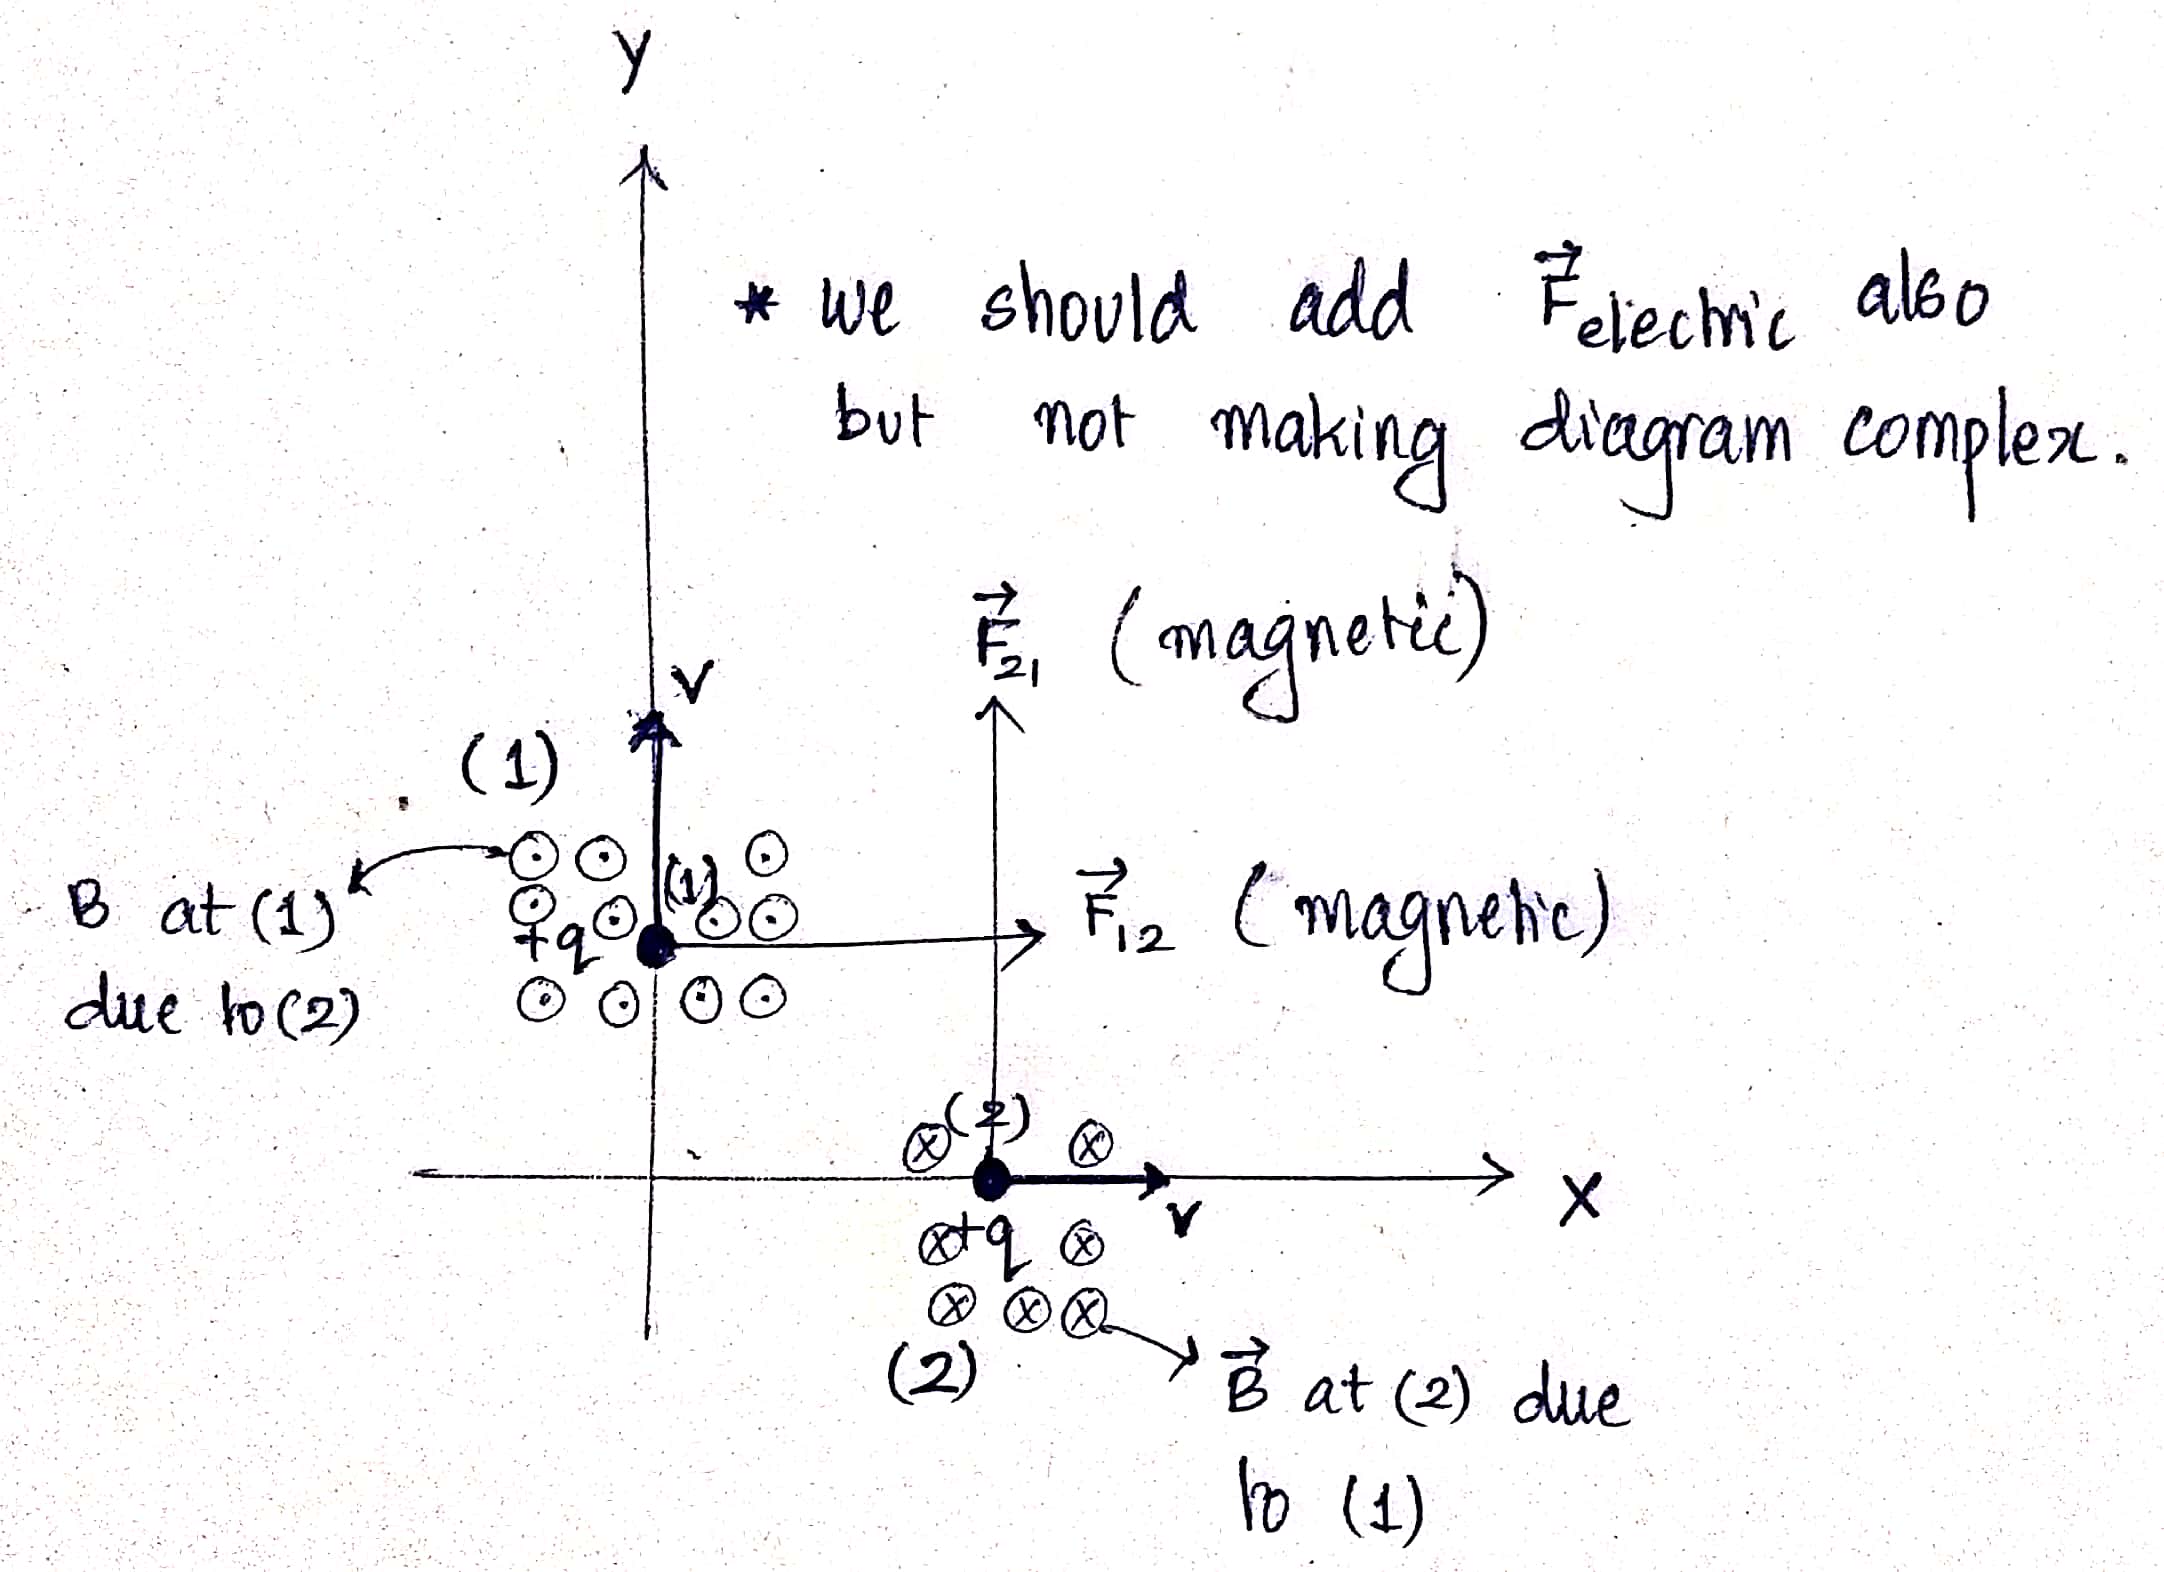 y
* we should add F⃗electric also
but not making diagram complex.
F⃗21 (magnetic)
v
(1)
(1)
B at (1)
due to (2)
+q
F⃗12 (magnetic)
(2)
x
v
+q
(2)
B⃗ at (2) due
to (1)